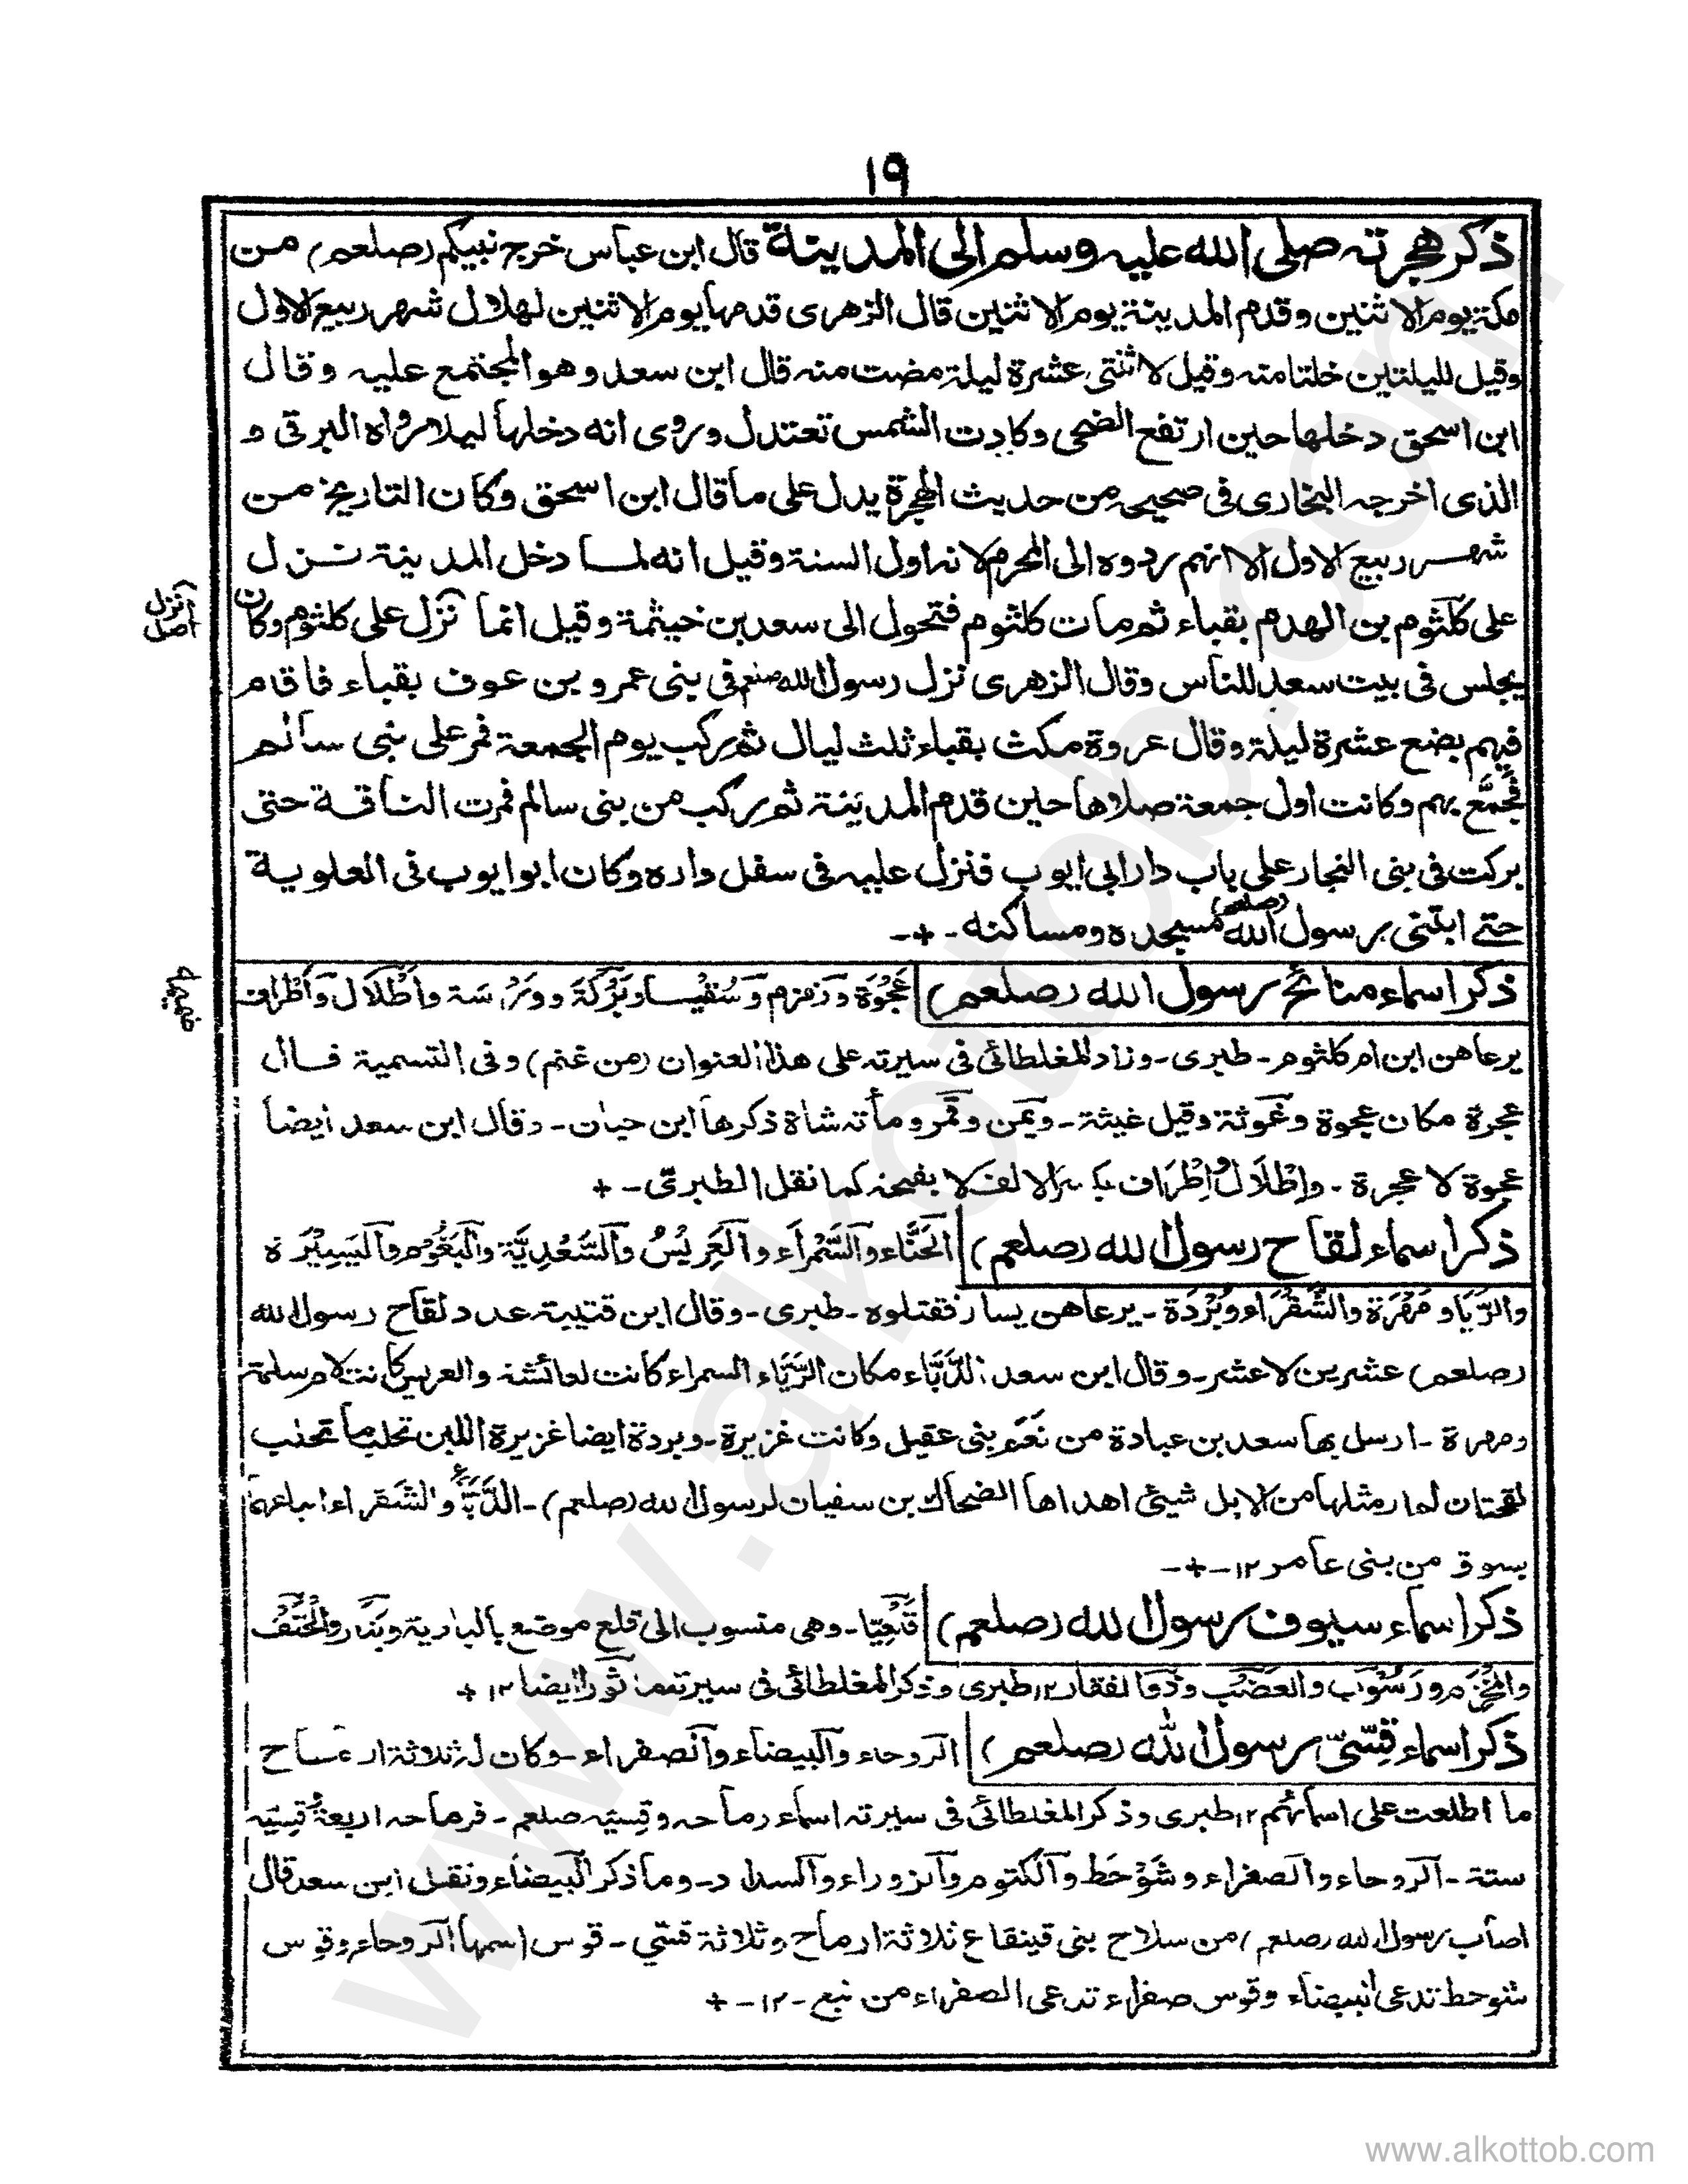 ١٩
ذكر هجرته صلى الله عليه وسلم الى المدينة قال ابن عباس خرج نبيكم (صلعم) من
مكة يوم الاثنين وقدم المدينة يوم الاثنين قال الزهرى قدمها يوم الاثنين لهلال شهر ربيع الاول
وقيل لليلتين خلتا منه وقيل لاثنتى عشرة ليلة مضت منه قال ابن سعد وهو المجتمع عليه وقال
ابن اسحق دخلها حين ارتفع الضحى وكادت الشمس تعتدل وروى انه دخلها ليلا رواه البرقى و
الذى اخرجه البخارى فى صحيحه من حديث الهجرة يدل على ما قال ابن اسحق وكان التاريخ من
شهر ربيع الاول الا انهم ردوه الى المحرم لانه اول السنة وقيل انه لما دخل المدينة نزل
على كلثوم بن الهدم بقباء ثم مات كلثوم فتحول الى سعد بن خيثمة وقيل انما نزل على كلثوم وكان
انزل
اصل
يجلس فى بيت سعد للناس وقال الزهرى نزل رسول الله صلعم فى بنى عمرو بن عوف بقباء فاقام
فيهم بضع عشرة ليلة وقال عروة مكث بقباء ثلث ليال ثم ركب يوم الجمعة فمر على بنى سالم
فجمّع بهم وكانت اول جمعة صلاها حين قدم المدينة ثم ركب من بنى سالم فمرت الناقة حتى
بركت فى بنى النجار على باب دار ابى ايوب فنزل عليه فى سفل داره وكان ابو ايوب فى العلوية
حتى ابتنى رسول الله (صلعم) مسجده ومساكنه -+-
ذكر اسماء منائح رسول الله (صلعم) عَجْوَة وزمزم وسُقْيا وبَرَكَة وورسة وأَطْلَال وأَطْرَاف
يرعاهن ابن ام كلثوم - طبرى - وزاد المغلطائى فى سيرته على هذا العنوان (من غنم) وفى التسمية قال
عجرة مكان عجوة وغوثة وقيل غيثة - ويمن وقمر ومأته شاة ذكرها ابن حيان - وقال ابن سعد ايضا
عجوة لا عجرة - وإِطْلَال وإِطْرَاف بكسر الالف لا بفيحنه كما نقل الطبرى - +
ذكر اسماء لقاح رسول الله (صلعم) الحَنَّاء والسَّمْرَاء والعَرِيْسُ والسَّعْدِيَّة والبَغُوْم واليَسِيْرَة
والرَّيَّا ومَهْرَة والشَّقْرَاء وبُرْدَة - يرعاهن يسار فقتلوه - طبرى - وقال ابن قتيبة عدد لقاح رسول الله
(صلعم) عشرين لا عشر - وقال ابن سعد الدَّبَّاء مكان الرَّيَّاء السمراء كانت لعائشة والعريس كانت لام سلمة
ومهرة - ارسل بها سعد بن عبادة من نَعَم بنى عقيل وكانت غزيرة - وبردة ايضا غزيرة اللبن تحلب ما تحلب
لقحتان لهما مثلها من الابل شيئ اهداها الضحاك بن سفيان لرسول الله (صلعم) - الدَّبَّاء والشقراء ابتاعهما
بسوق من بنى عامر ١٢ -+-
ذكر اسماء سيوف رسول الله (صلعم) قَلْعِيّا - وهى منسوب الى قلع موضع بالبادية وبَتَّار والحَتْف
والمِخْذَم ورَسُوْب والعَضْب وذو الفقار ١٢ طبرى وذكر المغلطائى فى سيرته ثورا ايضا ١٢ +
ذكر اسماء قِسِّىّ رسول الله (صلعم) الروحاء والبيضاء والصفراء - وكان له ثلاثة ارماح
ما اطلعت على اسمائهم ١٢ طبرى وذكر المغلطائى فى سيرته اسماء رماحه وقِسيّه صلعم - فرماحه اربعة وقِسِيّه
ستة - الروحاء والصفراء وشَوْحَط والكتوم والزوراء والسداد - وما ذكر البيضاء ونقل ابن سعد قال
اصاب رسول الله (صلعم) من سلاح بنى قينقاع ثلاثة ارماح وثلاثة قسّي - قوس اسمها الروحاء وقوس
شوحط تدعى البيضاء وقوس صفراء تدعى الصفراء من نبع - ١٢ - +
www.alkottob.com